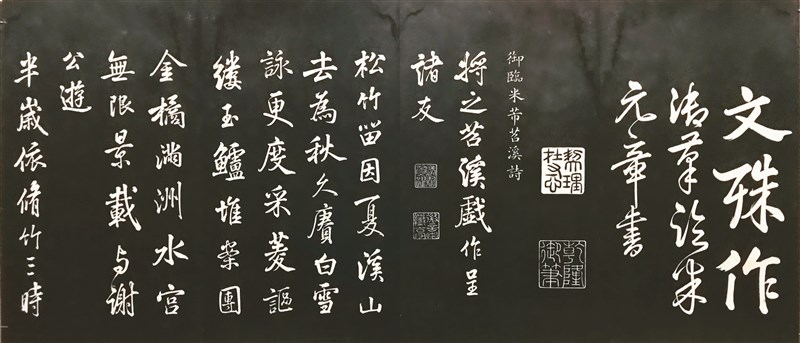 文殊作
御筆臨米
元章書
乾隆
御筆
御臨米芾苕溪詩
將之苕溪戲作呈
諸友
松竹留因夏溪山
去為秋久賡白雪
詠更度采菱謳
縷玉鱸堆案團
金橘滿洲水宮
無限景載与謝
公遊
半歲依脩竹三時